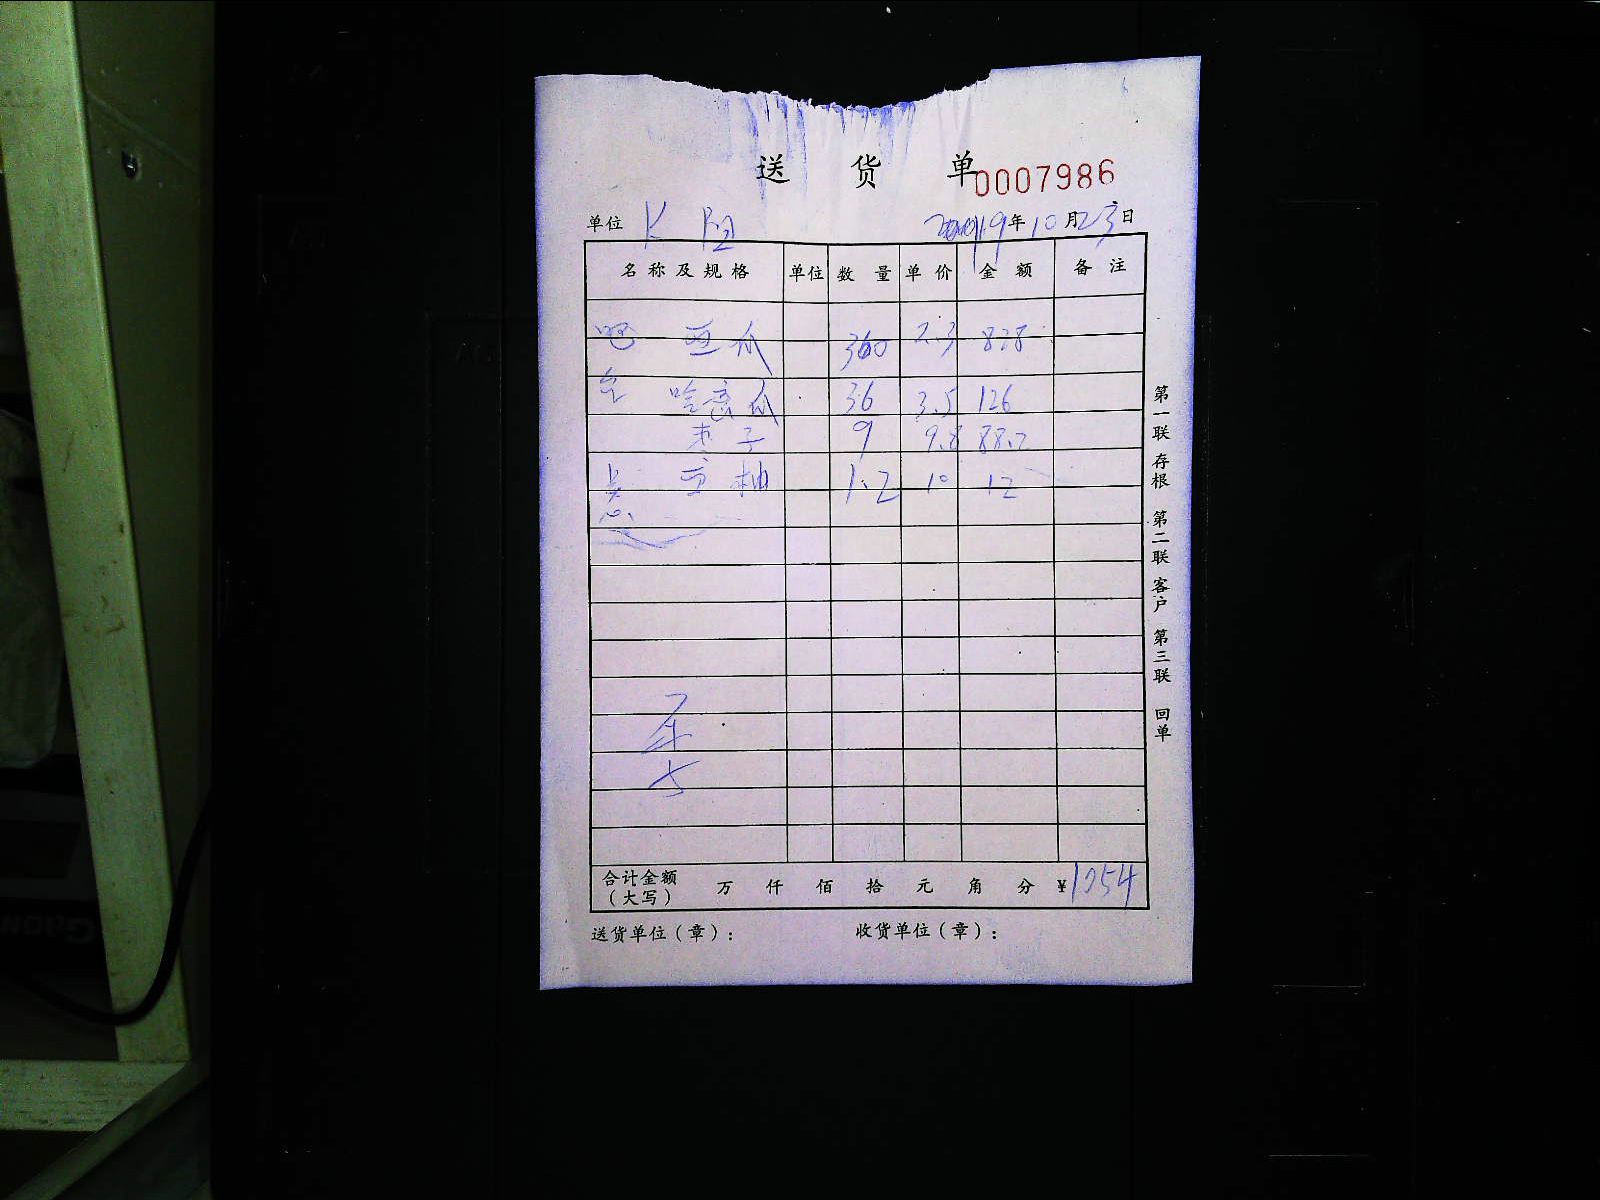 送 货 单 0007986
单位 K 阳 2019年10月23日
名称及规格 单位 数量 单价 金额 备注
吧 西瓜 360 2.3 828
哈密瓜 36 3.5 126
枣子 9 9.8 88.2
点心 西柚 1.2 10 12
合计金额(大写) 万 仟 佰 拾 元 角 分 ¥1054
送货单位(章): 收货单位(章):
第一联 存根 第二联 客户 第三联 回单